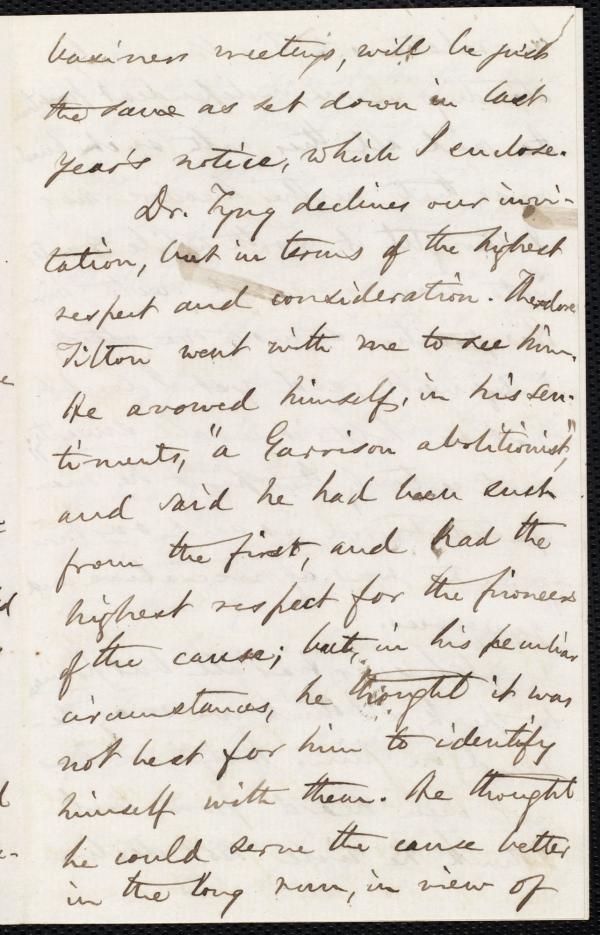 business meetings, will be just
the same as set down in last
year's notice, which I enclose.
Dr. Tyng declines our invi-
tation, but in terms of the highest
respect and consideration. Theodore
Tilton went with me to see him.
He avowed himself, in his sen-
timents, "a Garrison abolitionist",
and said he had been such
from the first, and had the
highest respect for the pioneers
of the cause; but, in his peculiar
circumstances, he thought it was
not best for him to identify
himself with them. He thought
he could serve the cause better
in the long run, in view of